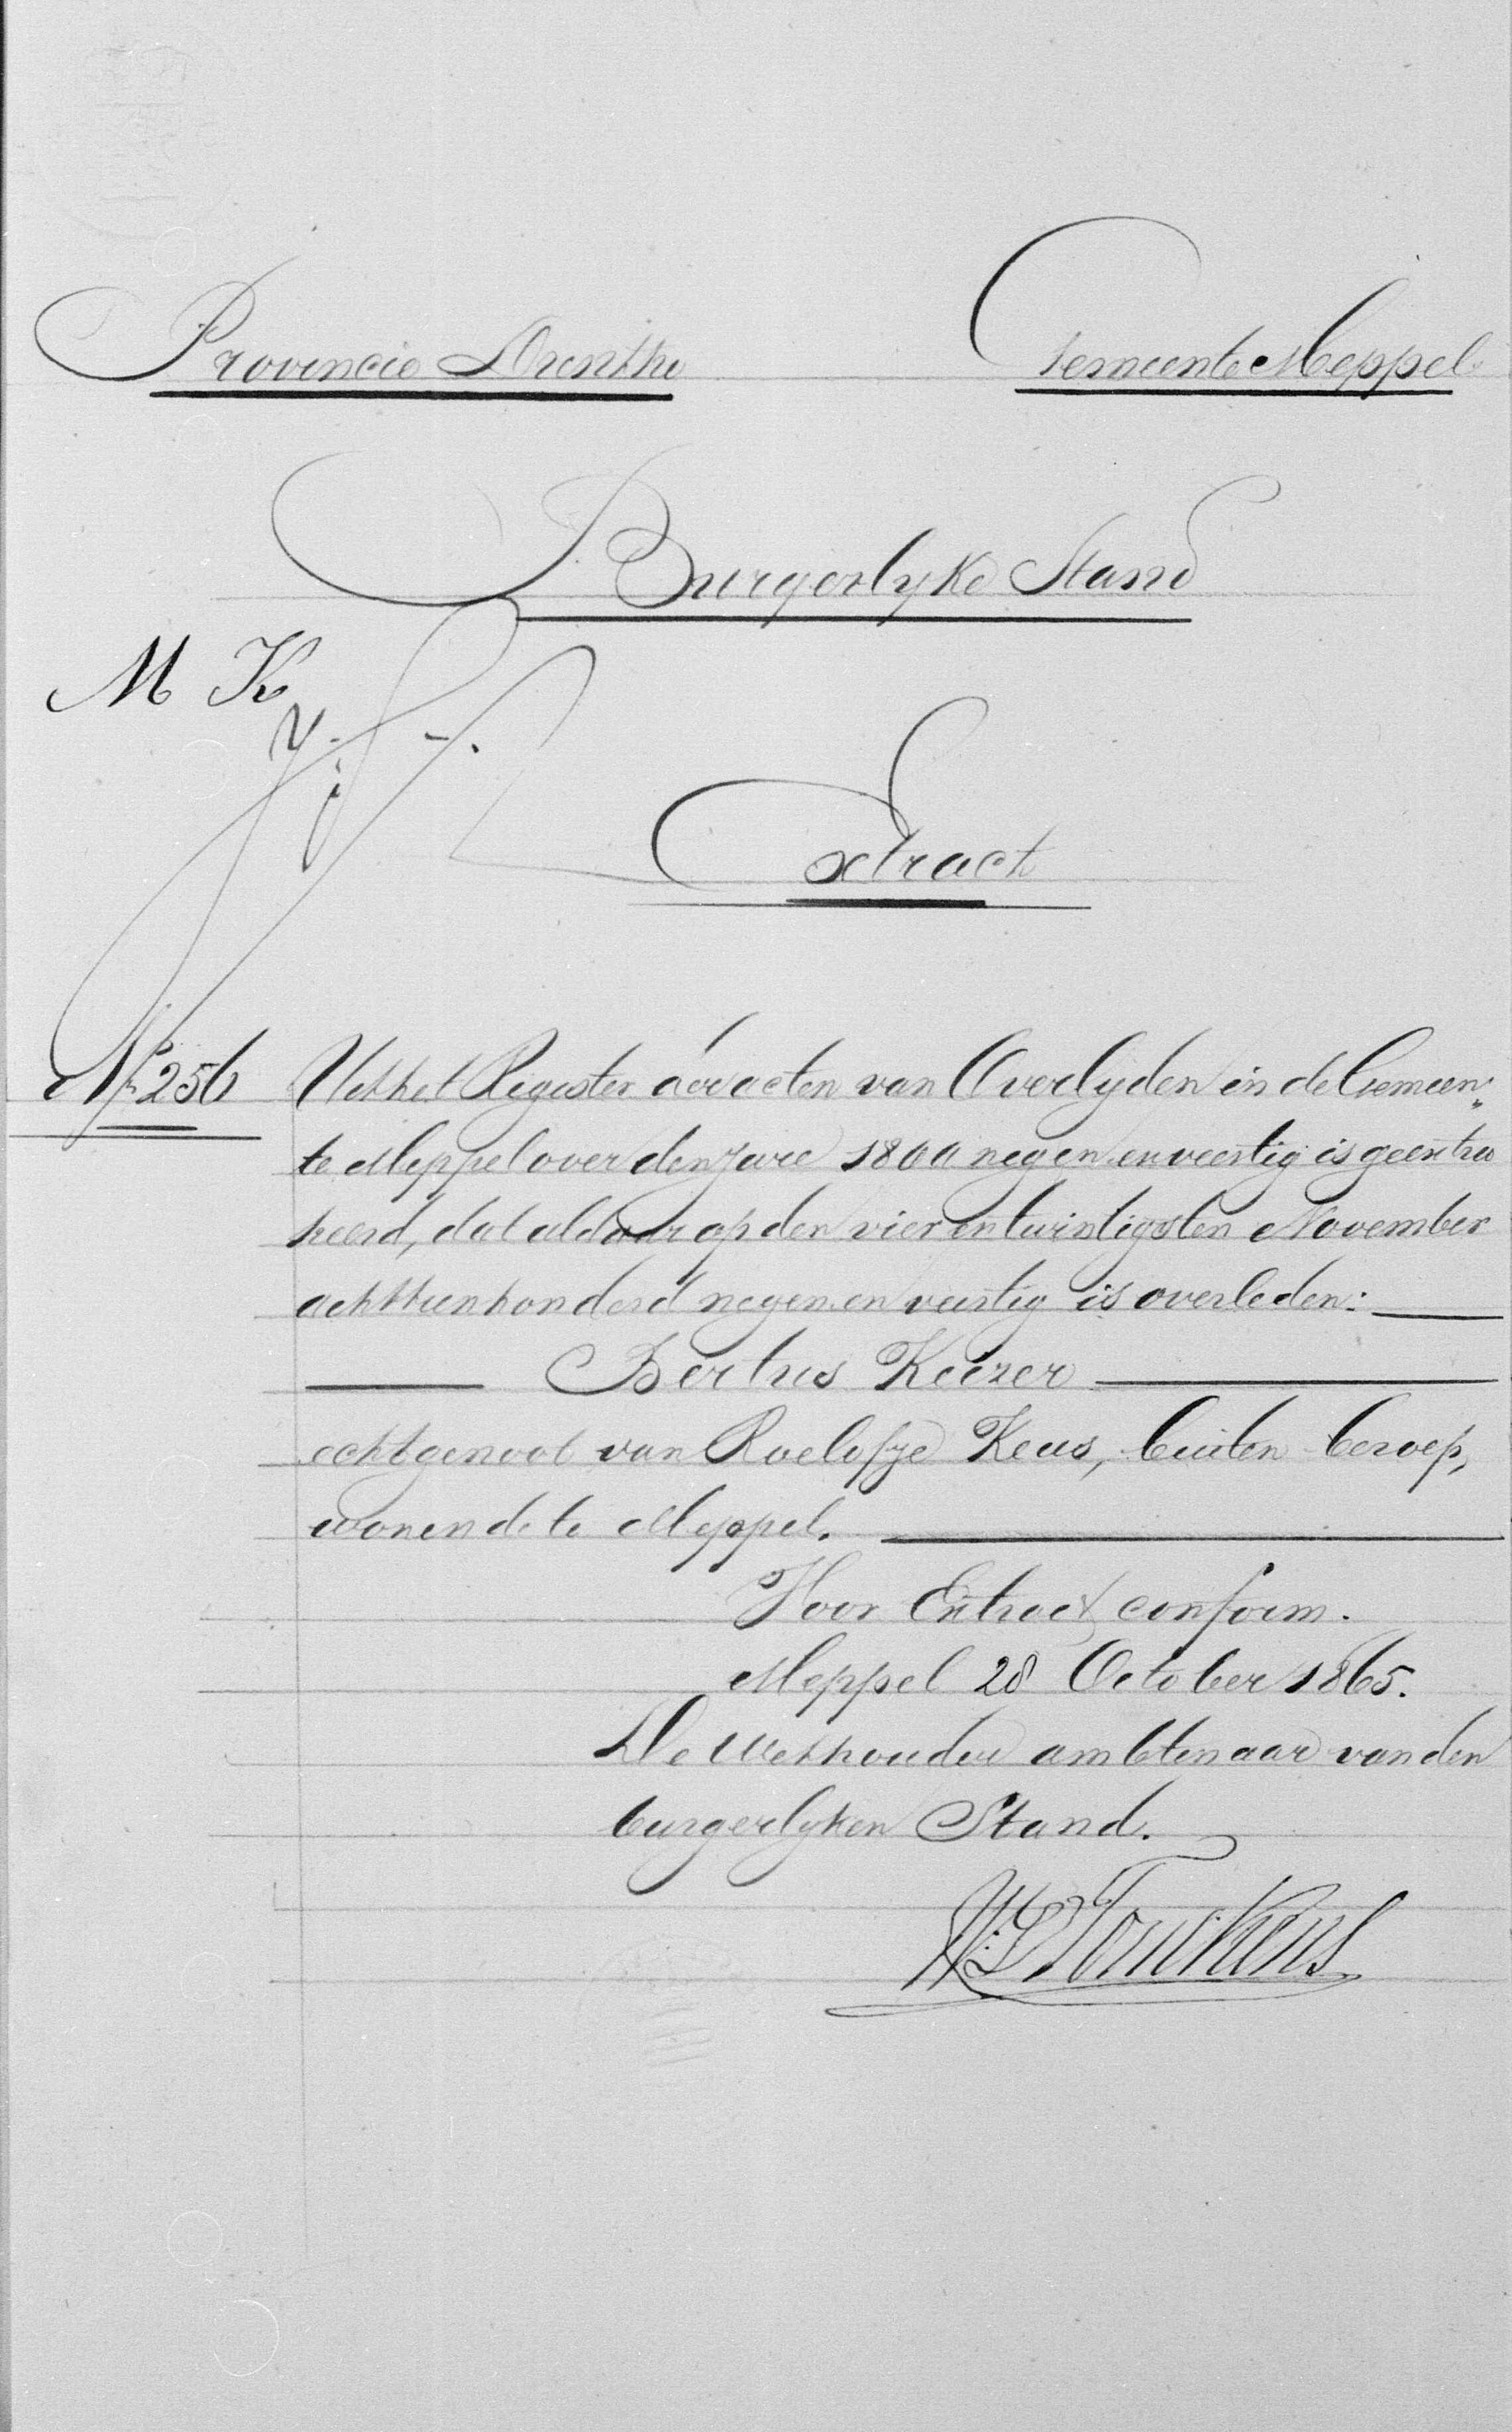 Provincie Drenthe Gemeente Meppel
Burgerlyke Stand
M K
Extract
N° 256 Uit het Register der acten van Overlijden in de Gemeen„
te Meppel over den Jare 1800 negen en veertig is geëxtra
heerd, dat aldaar op den vier en twintigsten November
achttienhonderd negen en veertig is overleden:
Bertus Keizer
echtgenoot van Roelofje Keus, buiten beroep,
wonende te Meppel.
Voor Extract conform.
Meppel 28 October 1865.
De Wethouder ambtenaar van den
burgerlyken Stand.
Tonckens